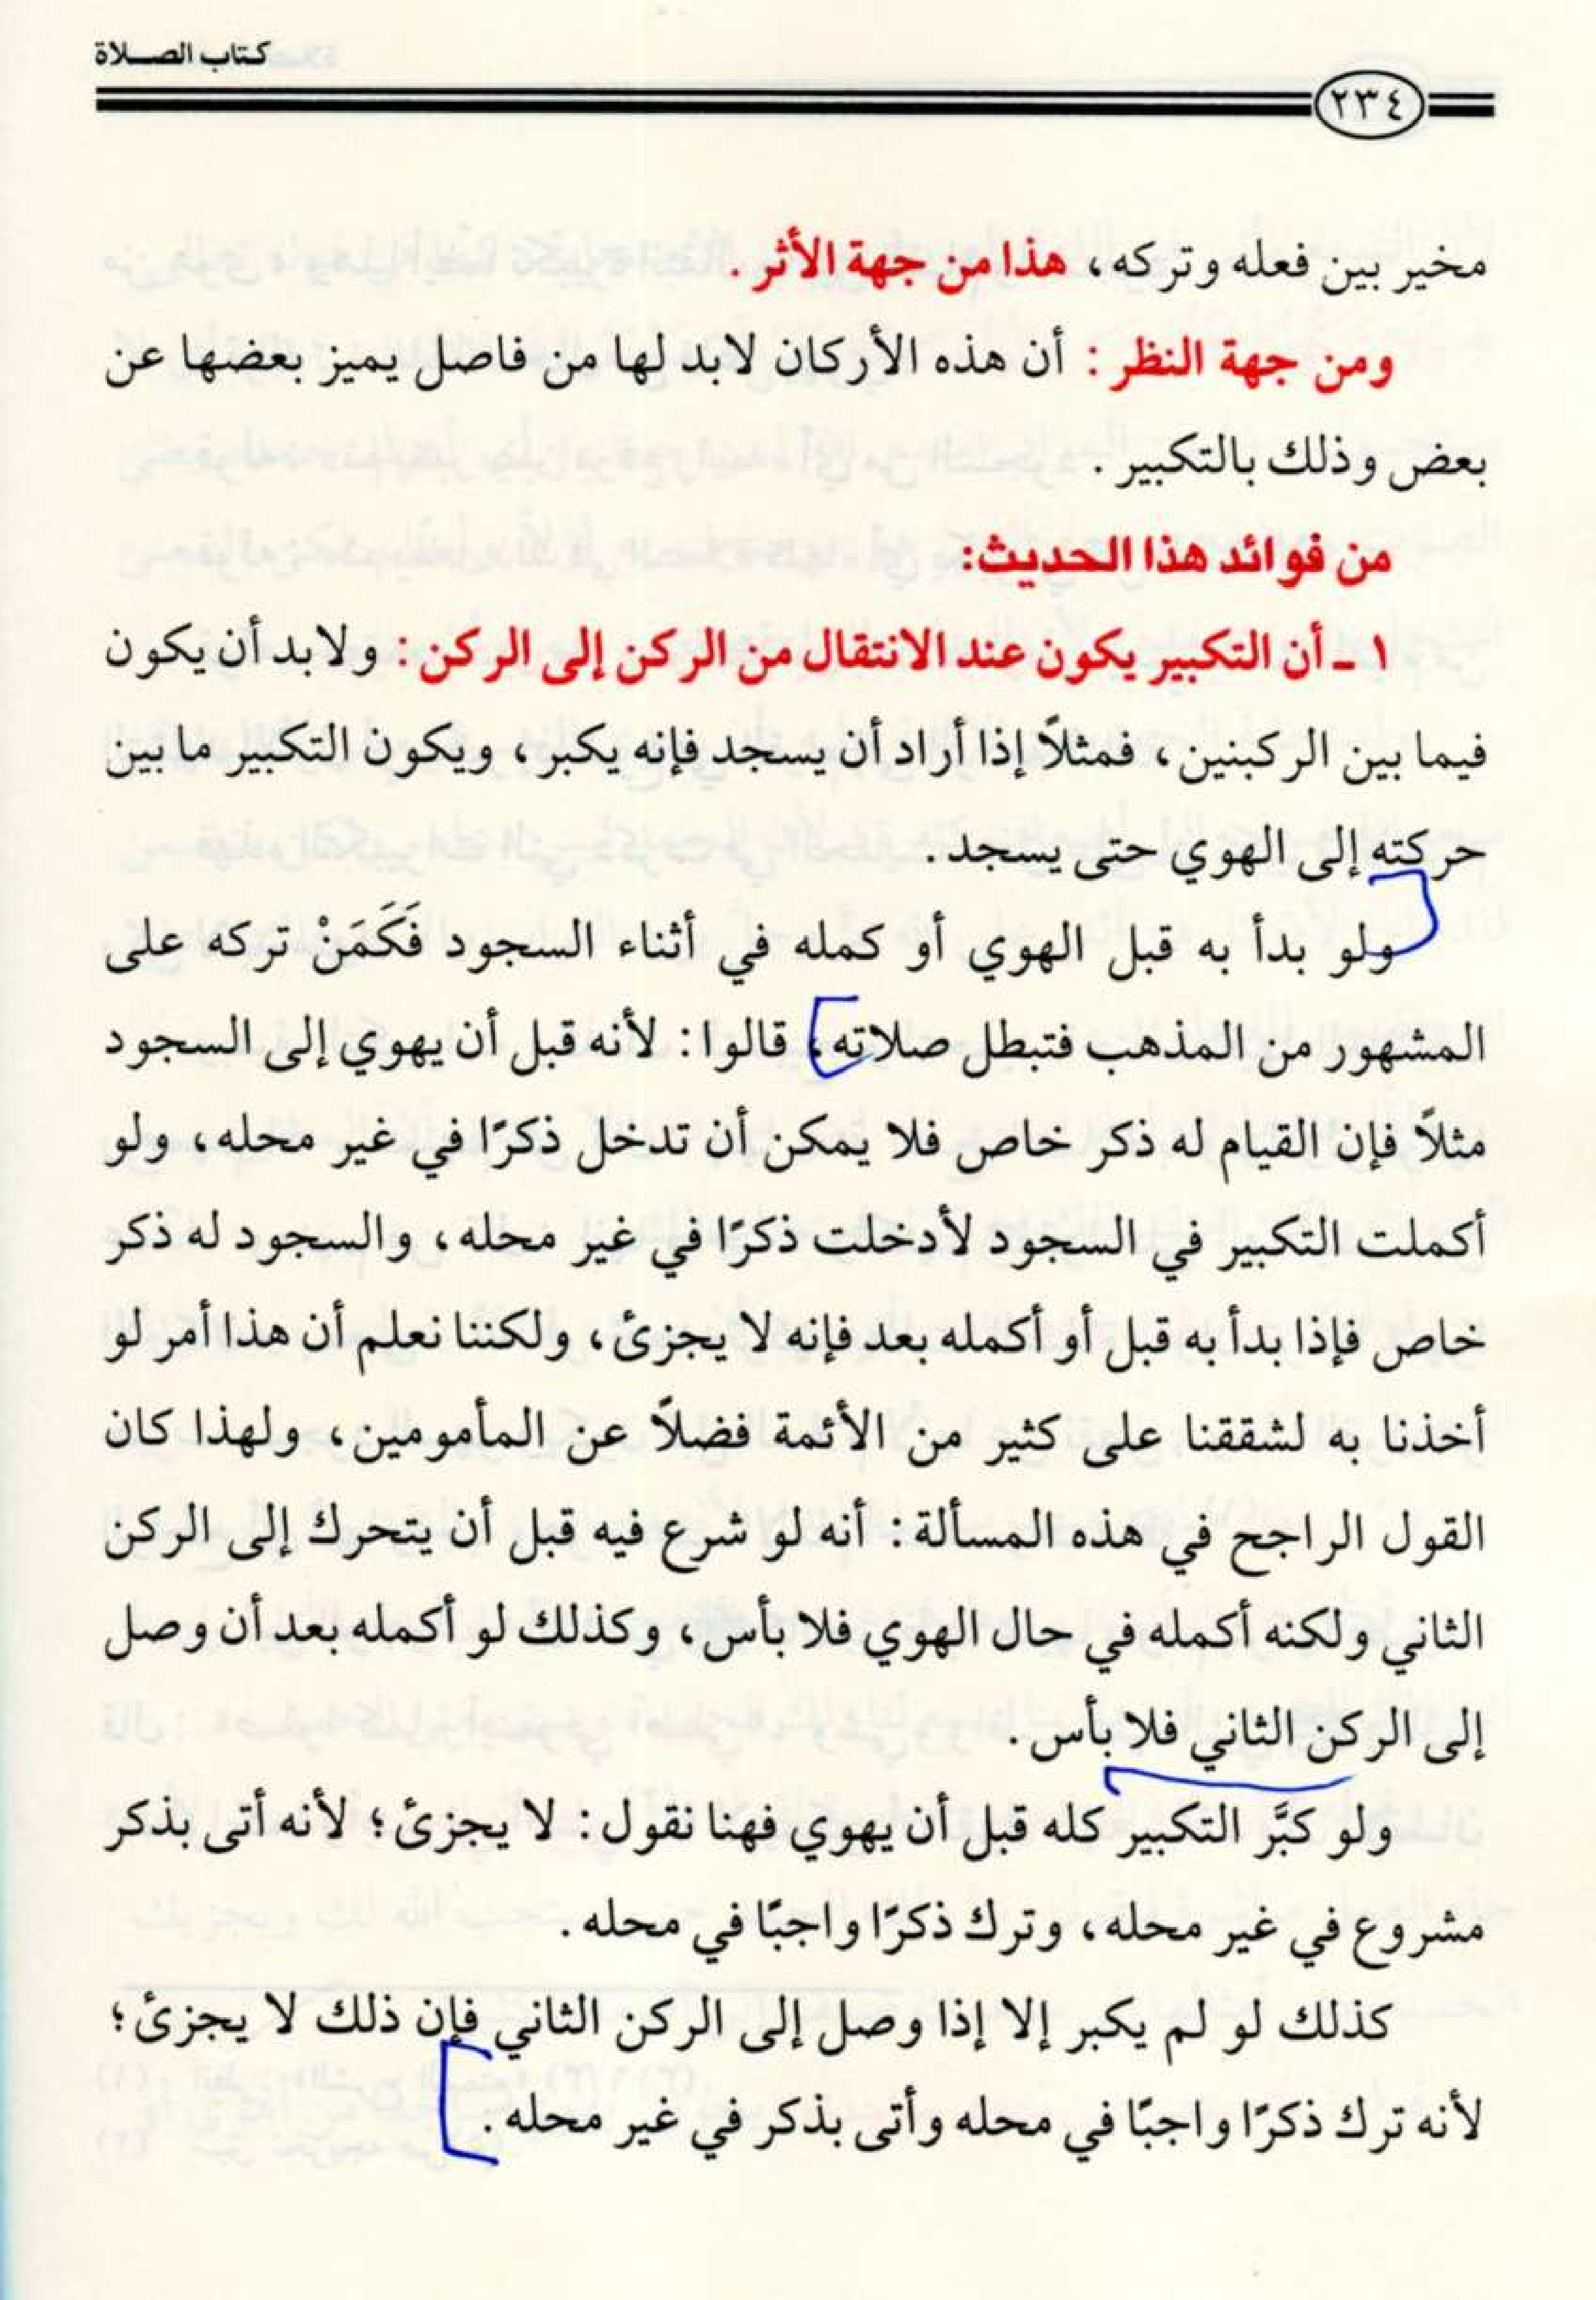 كتاب الصلاة
٢٣٤
مخير بين فعله وتركه، هذا من جهة الأثر .
ومن جهة النظر : أن هذه الأركان لابد لها من فاصل يميز بعضها عن
بعض وذلك بالتكبير .
من فوائد هذا الحديث:
١ ـ أن التكبير يكون عند الانتقال من الركن إلى الركن : ولابد أن يكون
فيما بين الركبنين، فمثلاً إذا أراد أن يسجد فإنه يكبر، ويكون التكبير ما بين
حركته إلى الهوي حتى يسجد.
ولو بدأ به قبل الهوي أو كمله في أثناء السجود فَكَمَنْ تركه على
المشهور من المذهب فتبطل صلاته، قالوا: لأنه قبل أن يهوي إلى السجود
مثلاً فإن القيام له ذكر خاص فلا يمكن أن تدخل ذكرًا في غير محله، ولو
أكملت التكبير في السجود لأدخلت ذكرًا في غير محله، والسجود له ذكر
خاص فإذا بدأ به قبل أو أكمله بعد فإنه لا يجزئ، ولكننا نعلم أن هذا أمر لو
أخذنا به لشققنا على كثير من الأئمة فضلاً عن المأمومين، ولهذا كان
القول الراجح في هذه المسألة: أنه لو شرع فيه قبل أن يتحرك إلى الركن
الثاني ولكنه أكمله في حال الهوي فلا بأس، وكذلك لو أكمله بعد أن وصل
إلى الركن الثاني فلا بأس.
ولو كبَّر التكبير كله قبل أن يهوي فهنا نقول: لا يجزئ؛ لأنه أتى بذكر
مشروع في غير محله، وترك ذكرًا واجبًا في محله.
كذلك لو لم يكبر إلا إذا وصل إلى الركن الثاني فإن ذلك لا يجزئ؛
لأنه ترك ذكرًا واجبًا في محله وأتى بذكر في غير محله.